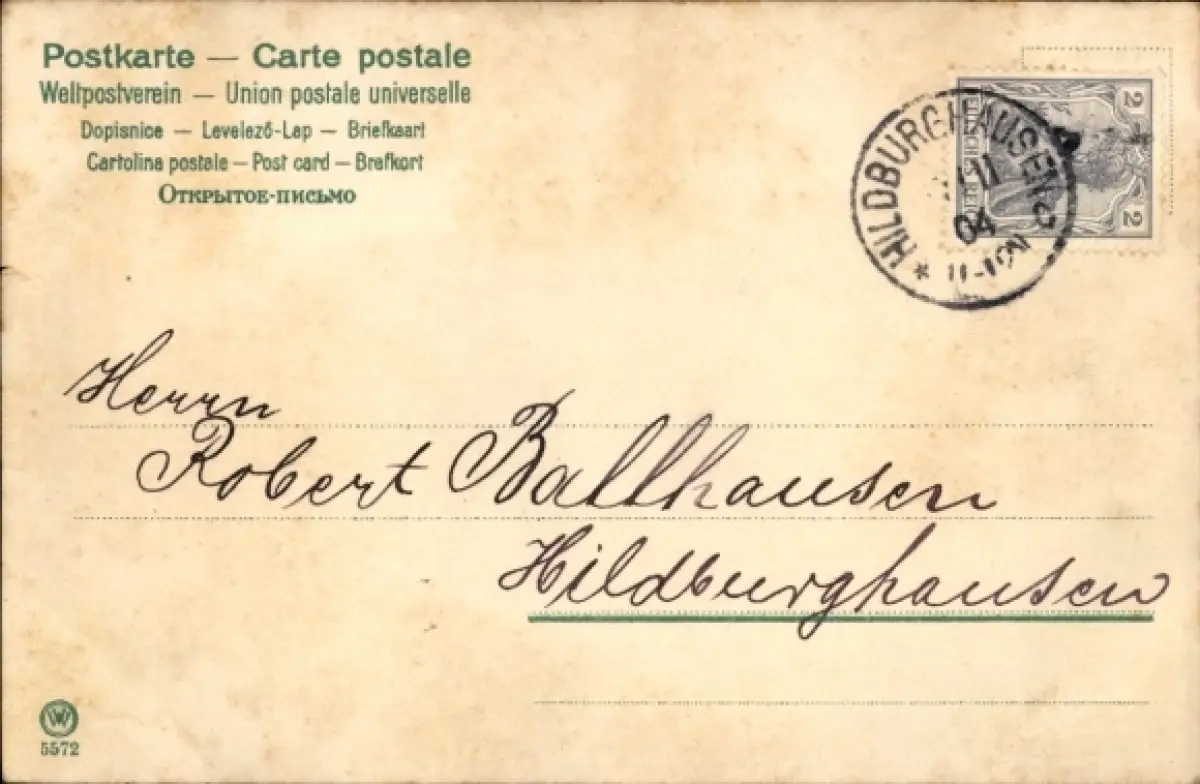 Postkarte — Carte postale
Weltpostverein — Union postale universelle
Dopisnice — Levelező-Lap — Briefkaart
Cartolina postale — Post card — Brefkort
Открытое-письмо
2
2
* HILDBURGHAUSEN
11
04
Herrn
Robert Ballhausen
Hildburghausen
W
5572